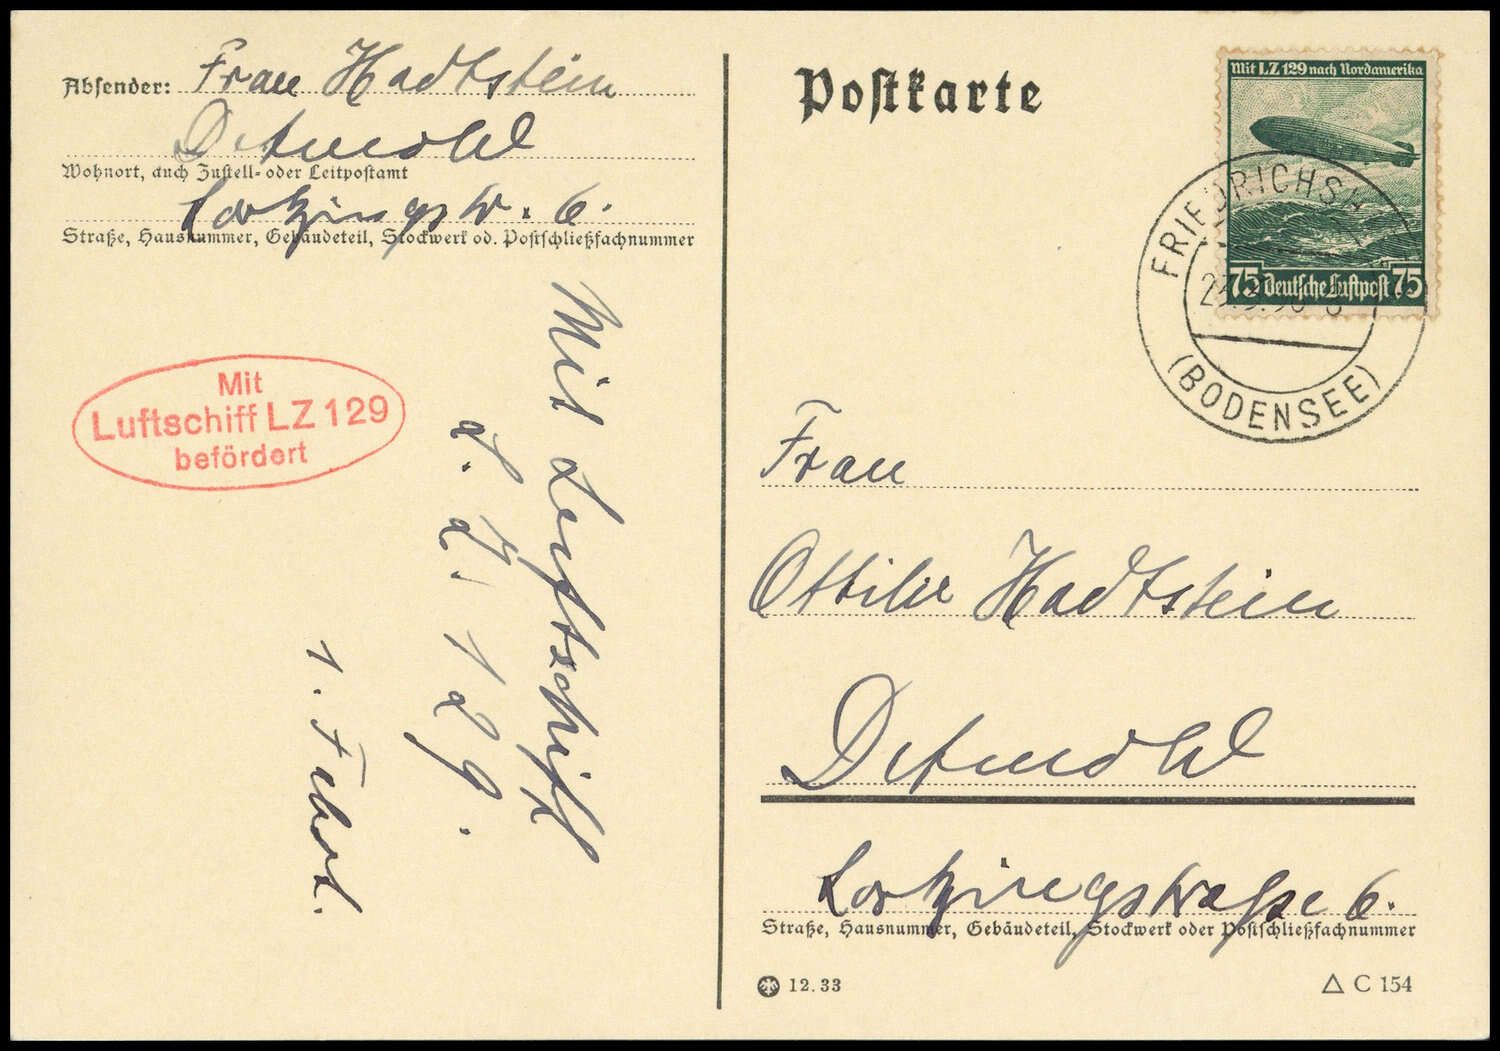 Absender: Frau Hadtstein
Detmold
Wohnort, auch Zustell- oder Leitpostamt
Lortzingstr. 6.
Straße, Hausnummer, Gebäudeteil, Stockwerk od. Postschließfachnummer
Mit
Luftschiff LZ 129
befördert
Mit Luftschiff
L. Z. 129.
1. Fahrt.
Postkarte
Mit LZ 129 nach Nordamerika
75 Deutsche Luftpost 75
(BODENSEE)
Frau
Ottilie Hadtstein
Detmold
Lortzingstraße 6.
Straße, Hausnummer, Gebäudeteil, Stockwerk oder Postschließfachnummer
12.33
△ C 154